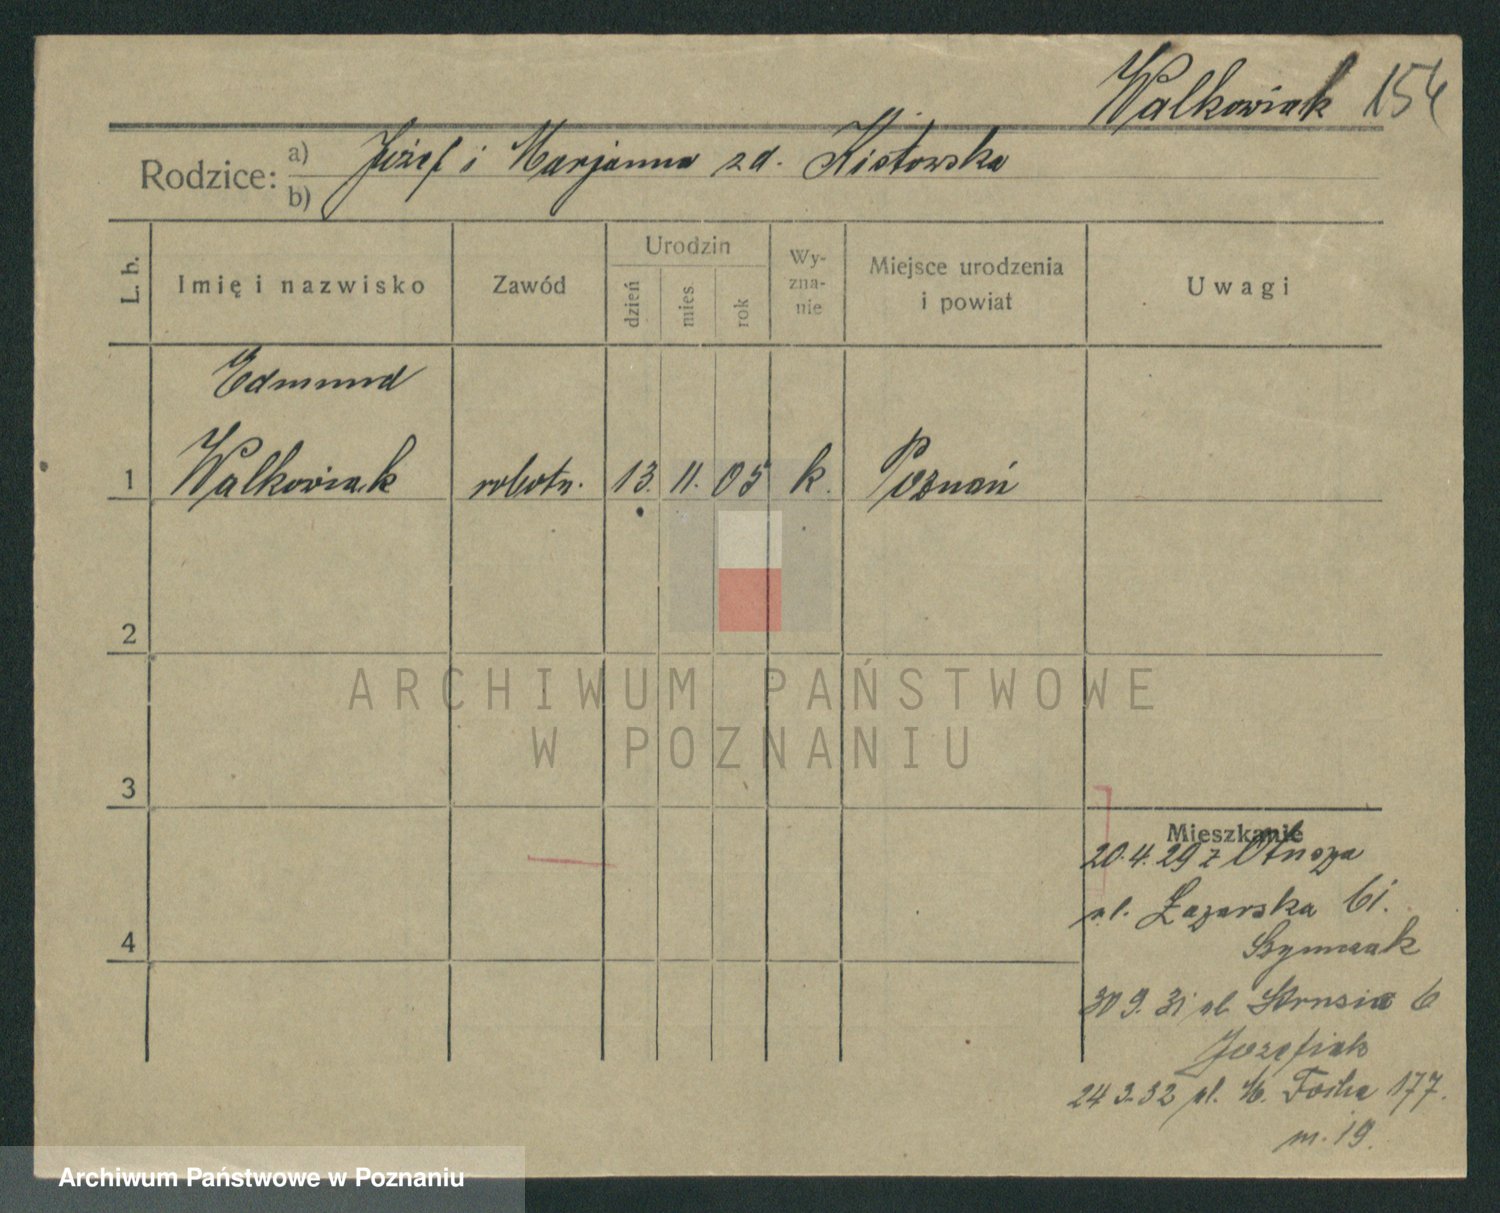 Walkowiak 154
Rodzice: a) Józef i Marjanna zd. Kistowska
b)
L. b.
Imię i nazwisko
Zawód
Urodzin
dzień
mies.
rok
Wy-
zna-
nie
Miejsce urodzenia
i powiat
Uwagi
Edmund
1 Walkowiak robotn. 13. 11. 05 k. Poznań
2
ARCHIWUM PAŃSTWOWE
W POZNANIU
3
Mieszkanie
20.4.29 z
ul. Łazarska 6i.
Szymczak
30 9. 31 ul. Strusia 6
Józefiak
24 3.32 ul. M. Focha 177.
m. 19.
4
Archiwum Państwowe w Poznaniu